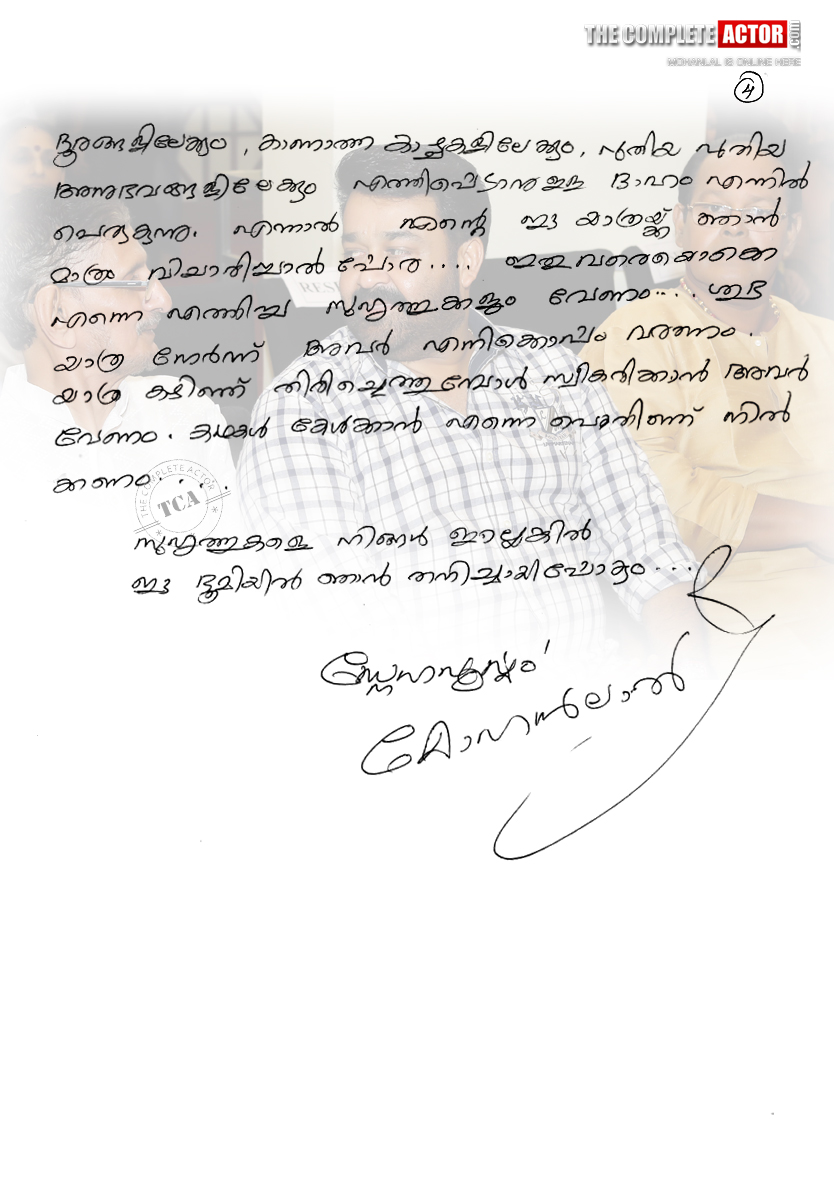 THE COMPLETE ACTOR .COM
MOHANLAL IS ONLINE HERE
4
ദൂരങ്ങളിലേക്കും, കാണാത്ത കാഴ്ചകളിലേക്കും, പുതിയ പുതിയ
അനുഭവങ്ങളിലേക്കും എത്തിപ്പെടാനുള്ള ദാഹം എന്നിൽ
പെരുകുന്നു. എന്നാൽ എന്റെ ഈ യാത്രയ്ക്ക് ഞാൻ
മാത്രം വിചാരിച്ചാൽ പോര.... ഇതുവരെയൊക്കെ
എന്നെ എത്തിച്ച സുഹൃത്തുക്കളും വേണം.... ശുഭ
യാത്ര നേർന്ന് അവർ എനിക്കൊപ്പം വരണം.
യാത്ര കഴിഞ്ഞ് തിരിച്ചെത്തുമ്പോൾ സ്വീകരിക്കാൻ അവർ
വേണം. കഥകൾ കേൾക്കാൻ എന്നെ പൊതിഞ്ഞ് നിൽ
ക്കണം....
സുഹൃത്തുകളെ നിങ്ങൾ ഇല്ലെങ്കിൽ
ഈ ഭൂമിയിൽ ഞാൻ തനിച്ചായിപ്പോകും...
സ്നേഹപൂർവ്വം
മോഹൻലാൽ
THE COMPLETE ACTOR
TCA